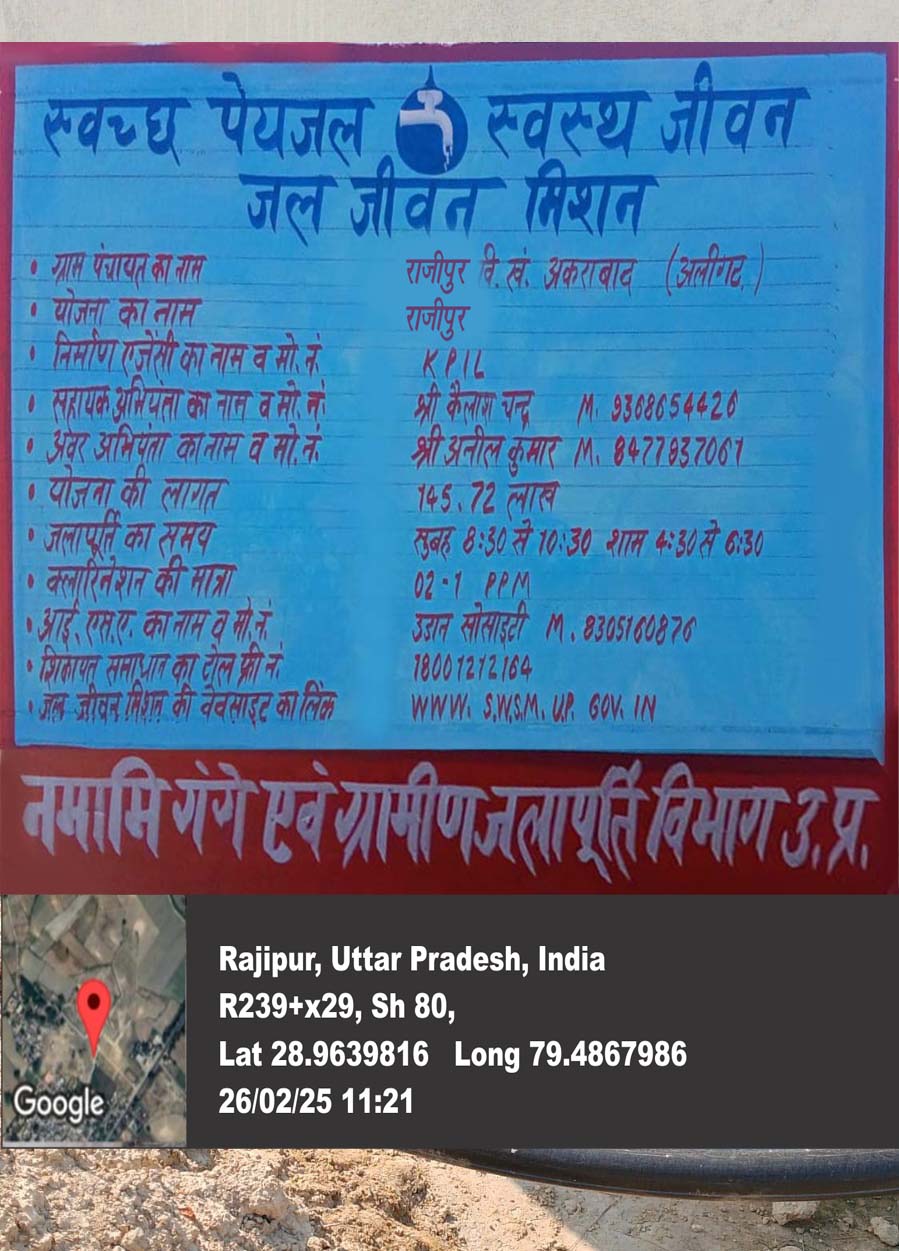 स्वच्छ पेयजल स्वस्थ जीवन
जल जीवन मिशन
• ग्राम पंचायत का नाम राजीपुर वि.खं. अकराबाद (अलीगढ़)
• योजना का नाम राजीपुर
• निर्माण एजेंसी का नाम व मो.नं. KPIL
• सहायक अभियंता का नाम व मो.नं. श्री कैलाश चन्द्र M. 9368654426
• अवर अभियंता का नाम व मो.नं. श्री अनील कुमार M. 8477837061
• योजना की लागत 145.72 लाख
• जलापूर्ति का समय सुबह 8:30 से 10:30 शाम 4:30 से 6:30
• क्लारिनेशन की मात्रा 02-1 PPM
• आई.एस.ए. का नाम व मो.नं. उडान सोसाइटी M. 8305160876
• शिकायत समाधान का टोल फ्री नं. 18001212164
• जल जीवन मिशन की वेबसाइट का लिंक WWW. S.W.S.M. U.P. GOV. IN
नमामि गंगे एवं ग्रामीण जलापूर्ति विभाग उ.प्र.
Rajipur, Uttar Pradesh, India
R239+x29, Sh 80,
Lat 28.9639816 Long 79.4867986
26/02/25 11:21
Google